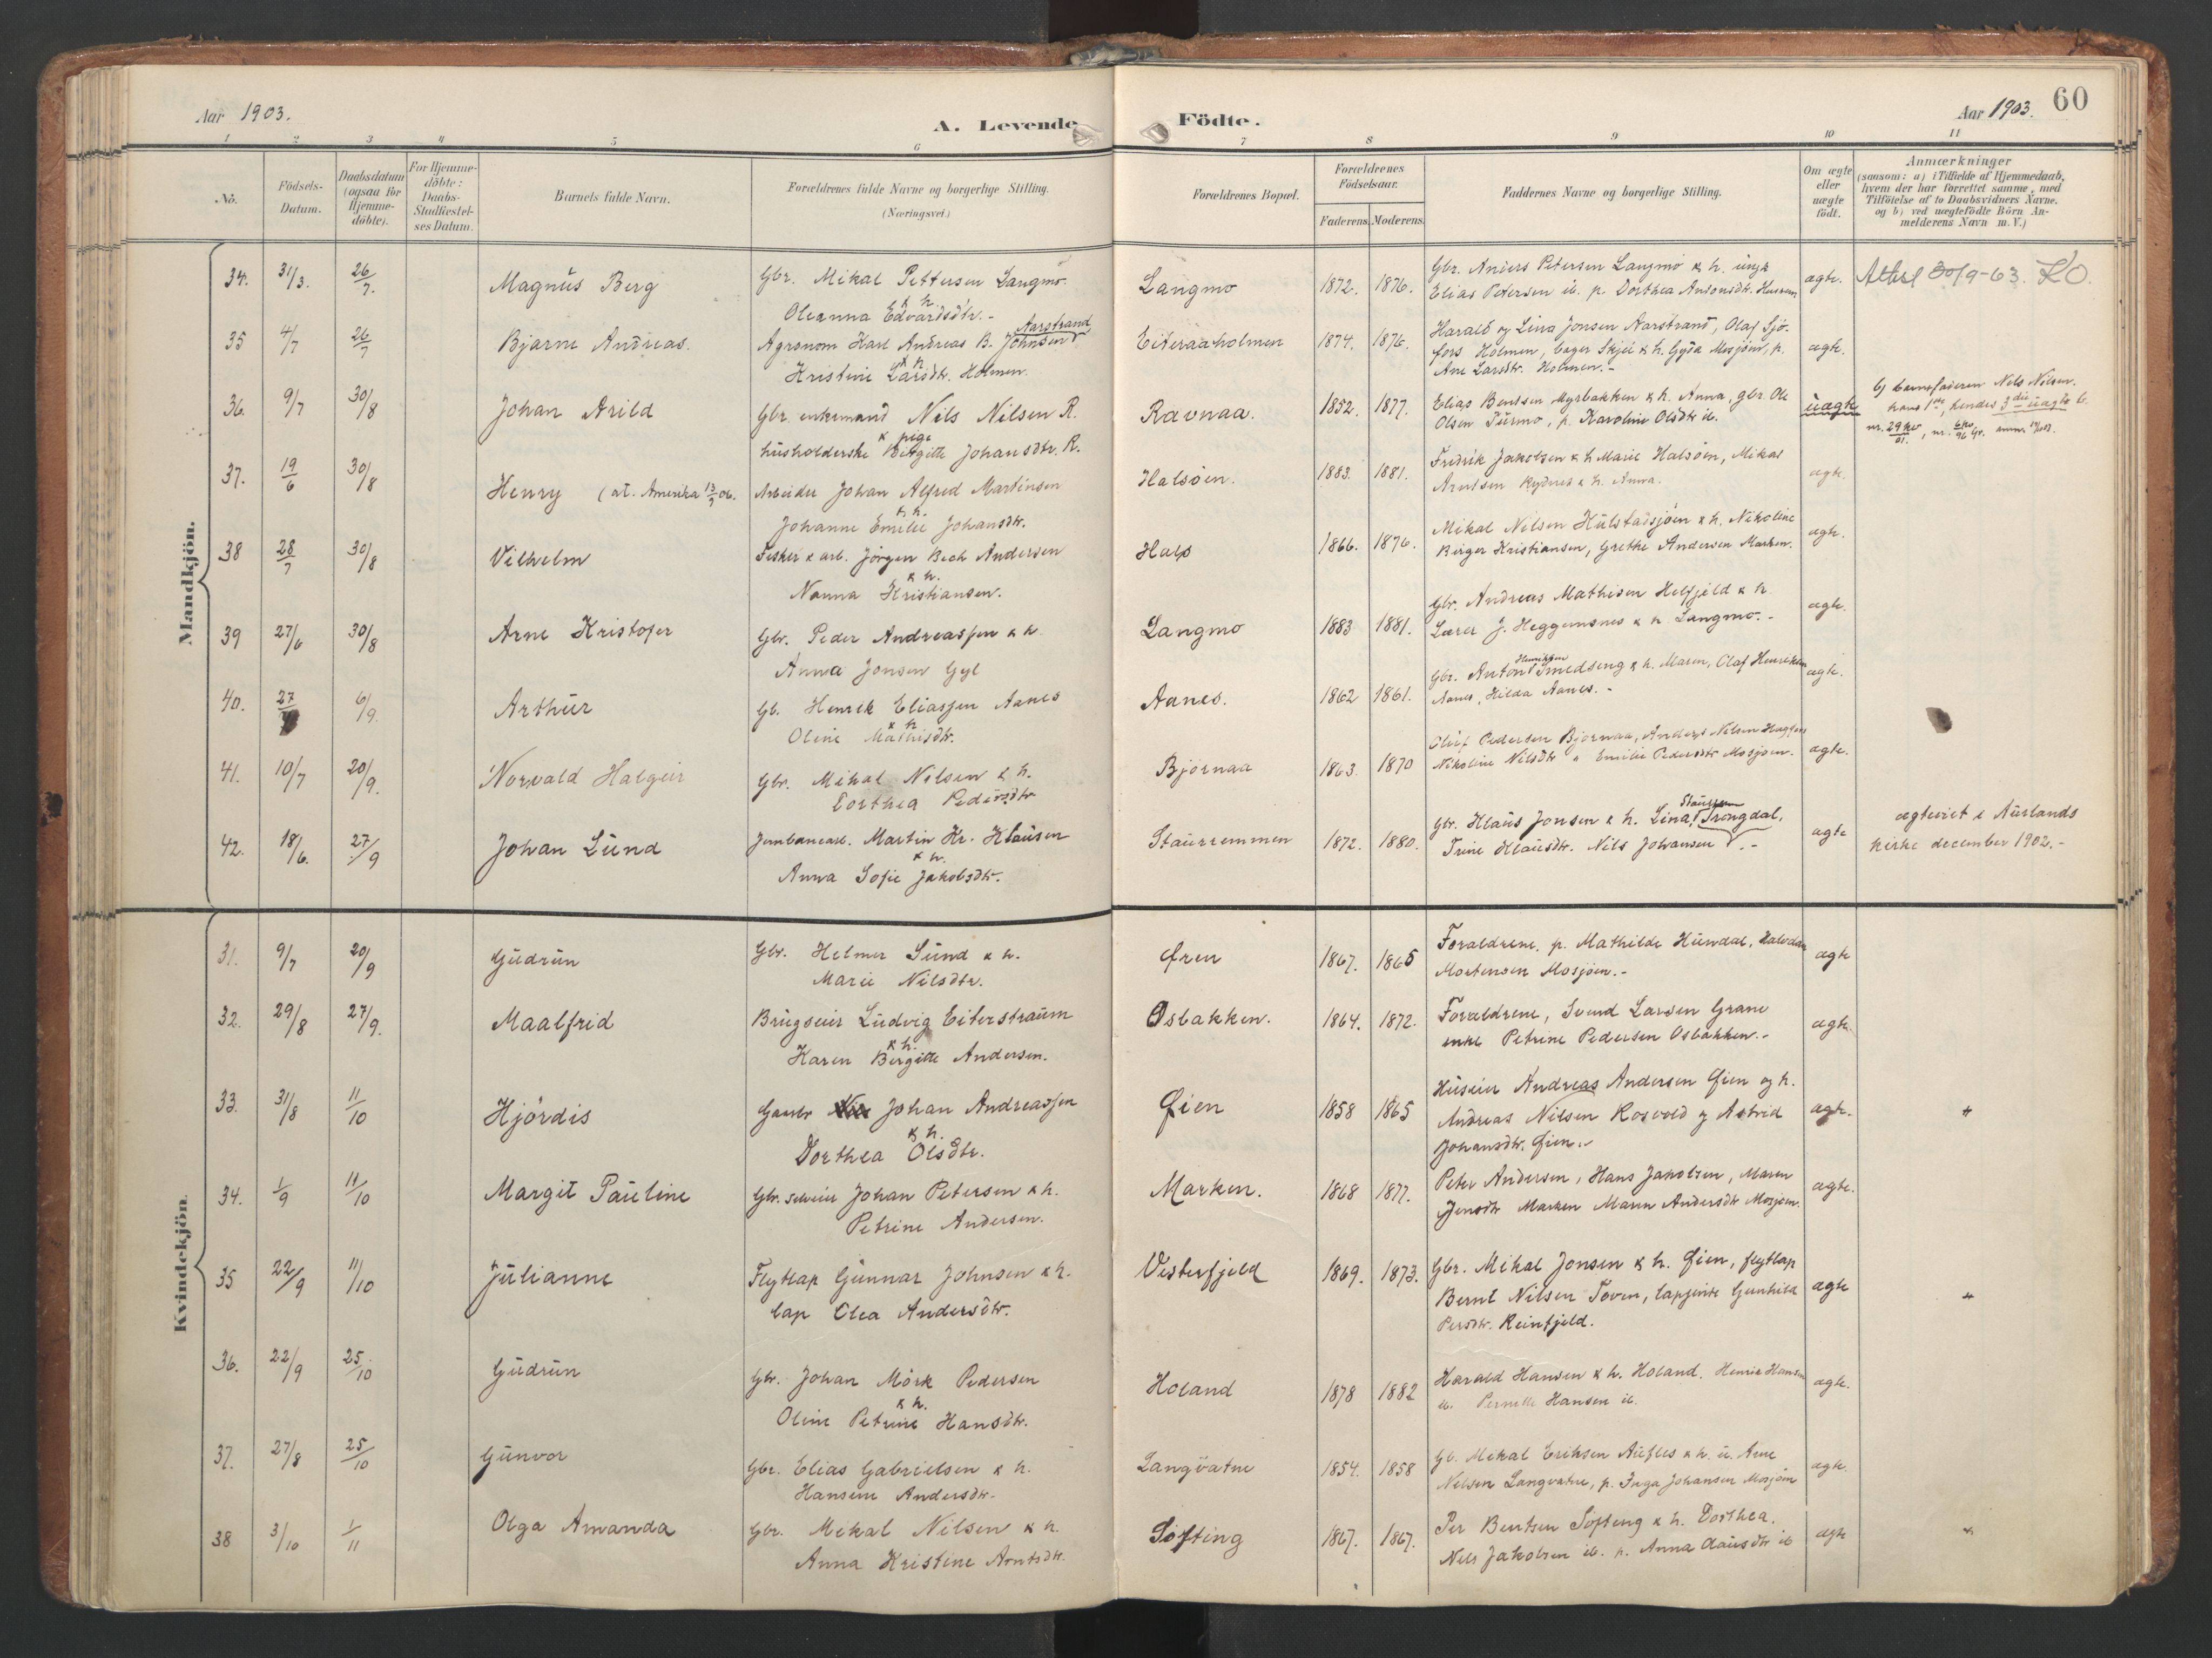 Aar 1903.
A. Levende Födte.
Aar 1903. 60
1 2 3 4 5 6 7 8 9 10 11
No.
Födsels-Datum.
Daabsdatum (ogsaa for Hjemme-döbte).
For Hjemme-döbte: Daabs-Stadfæstel-ses Datum.
Barnets fulde Navn.
Forældrenes fulde Navne og borgerlige Stilling. (Næringsvei.)
Forældrenes Bopæl.
Forældrenes Födselsaar.
Faderens. Moderens.
Faddernes Navne og borgerlige Stilling.
Om ægte eller uægte født.
Anmærkninger
(saasom: a) i Tilfælde af Hjemmedaab, hvem der har forrettet samme, med Tilföielse af to Daabsvidners Navne. og b) ved uægtefödte Börn An-melderens Navn m. V.)
Mandkjön.
34. 31/3. 26/7. Magnus Berg Gbr. Mikal Pettersen Langmo & h. Langmo 1872. 1876. Gbr. Anders Petersen Langmo & h. ungk ægte. Attest 30/9-63. KO.
Oleanna Edvardsdtr.- Elias Petersen ib. p. Dorthea Antonsdtr.
35 4/7 26/7 Bjarne Andreas. Agronom Karl Andreas B. Johnsen Aarstrand & h. Eiteraaholmen 1874. 1876. Harald og Lina Jonsen Aarstrand, Olaf Sjö- ægte.
Kristine Larsdtr. Holmen. fors Holmen, bager Skjei & h. Gyda Mosjöen, p.
Ane Larsdtr. Holmen.-
36. 9/7 30/8 Johan Arild Gbr. enkemand Nils Nilsen R. Ravnaa. 1852. 1877. Elias Bentsen Myrbakken & h. Anna, gbr. Ole uægte b) barnefaderen Nils Nilsen.
& pige
husholderske Birgitte Johansdtr. R. Olsen Turmo, p. Karoline Olsdtr ib. hans 1ste, hendes 3die uægte b.
37. 19/6 30/8 Henry (at. Amerika 13/9 06. Arbeider Johan Alfred Martinsen & h. Halsöen. 1883. 1881. Fredrik Jakobsen & h Marie Halsöen, Mikal ægte.
Johanne Emilie Johansdtr. Arntsen & h. Anna.
38 28/7 30/8 Vilhelm Fisker & arb. Jörgen Bech Andersen & h. Hals 1866. 1876. Mikal Nilsen Hulstadsjöen & h. Nikoline ægte.
Nanna Kristiansen. Birger Kristiansen, Grethe Andersen Marken.
39 27/6 30/8 Arne Kristofer Gbr. Peder Andreassen & h. Langmo 1883 1881. Gbr. Andreas Mathisen Helfjeld & h. ægte.
Anna Jonsen Gyl Lærer J. Heggemsnes & h. Langmo.-
40. 27/ 6/9. Arthur Gb. Henrik Eliassen Aanes & h. Aanes. 1862 1861. Gbr. Anton Henriksen Smedseng & h. Maren, Olaf Henriksen ægte.
Oline Mathisdtr. Aanes, Hilda Aanes.-
41. 10/7 20/9. Norvald Halgeir Gbr. Mikal Nilsen & h. Bjornaa 1863. 1870 Oluf Pedersen Bjornaa, Anders Nilsen ægte.
Dorthea Pedersdtr Nikoline Nilsdtr Emilie Pedersdtr Mosjöen.
42. 18/6. 27/9 Johan Lund Jernbanearb. Martin Kr. Klausen & h. Staurremmen 1872. 1880. Gbr. Klaus Jonsen & h. Lina, Trongdal. ægte ægteviet i Aurlands
Anna Sofie Jakobsdtr. Trine Klausdtr. Nils Johansen.- kirke december 1902.-
Kvindekjön.
31. 9/7 20/9 Gudrun Gbr. Helmer Lund & h. Øren 1867. 1865 Forældrene, p. Mathilde Hundal, Halvdan ægte
Marie Nilsdtr. Mortensen Mosjöen.-
32. 29/8 27/9. Maalfrid Brugseier Ludvig Eiterstraum & h. Osbakken. 1864. 1872. Forældrene, Svend Larsen Grane ægte.
Karen Bergitte Andersen. enke Petrine Pedersen Osbakken.-
33. 31/8 11/10 Hjördis Johan Andreassen & h. Øien 1858 1865 Huseier Andreas Andersen Øien og h. ægte. "
Dorthea Olsdtr. Andreas Nilsen Rosvold og Astrid
Johansdtr. Øien.-
34. 1/9 11/10 Margit Pauline Gbr. Johan Petersen & h. Marken. 1868 1877. Peter Andersen, Hans Jakobsen, Maren ægte.
Petrine Andersen. Jensdtr Marken Maren Andersdtr Mosjöen.
35 22/9 11/10 Julianne Flytlap Gunnar Johnsen & h. Vesterfjeld 1869. 1873. Gbr. Mikal Jonsen & h. Øien, flytlap ægte "
lap Olea Andersdtr. Bernt Nilsen Toven, lapjente Gunhild
Persdtr. Reinfjeld.
36. 22/9 25/10 Gudrun Gbr. Johan Mörk Pedersen & h. Holand 1878 1882 Harald Hansen & h. Holand. Henrik Hansen ægte.
Oline Petrine Hansdtr. ib. Pernille Hansen ib.
37. 27/8 25/10 Gunvor Gbr. Elias Gabrielsen & h. Langvatne 1854. 1858 Gb. Mikal Eriksen & h. Arne ægte.
Hansine Andersdtr. Nilsen Langvatne, p. Inga Johansen Mosjöen
38 3/10 1/11 Olga Amanda Gbr. Mikal Nilsen & h. Söfting 1867. 1867. Per Bentsen Söfting & h. Dorthea. ægte "
Anna Kristine Arntsdtr. Nils Jakobsen ib. p. Anna Clausdtr ib